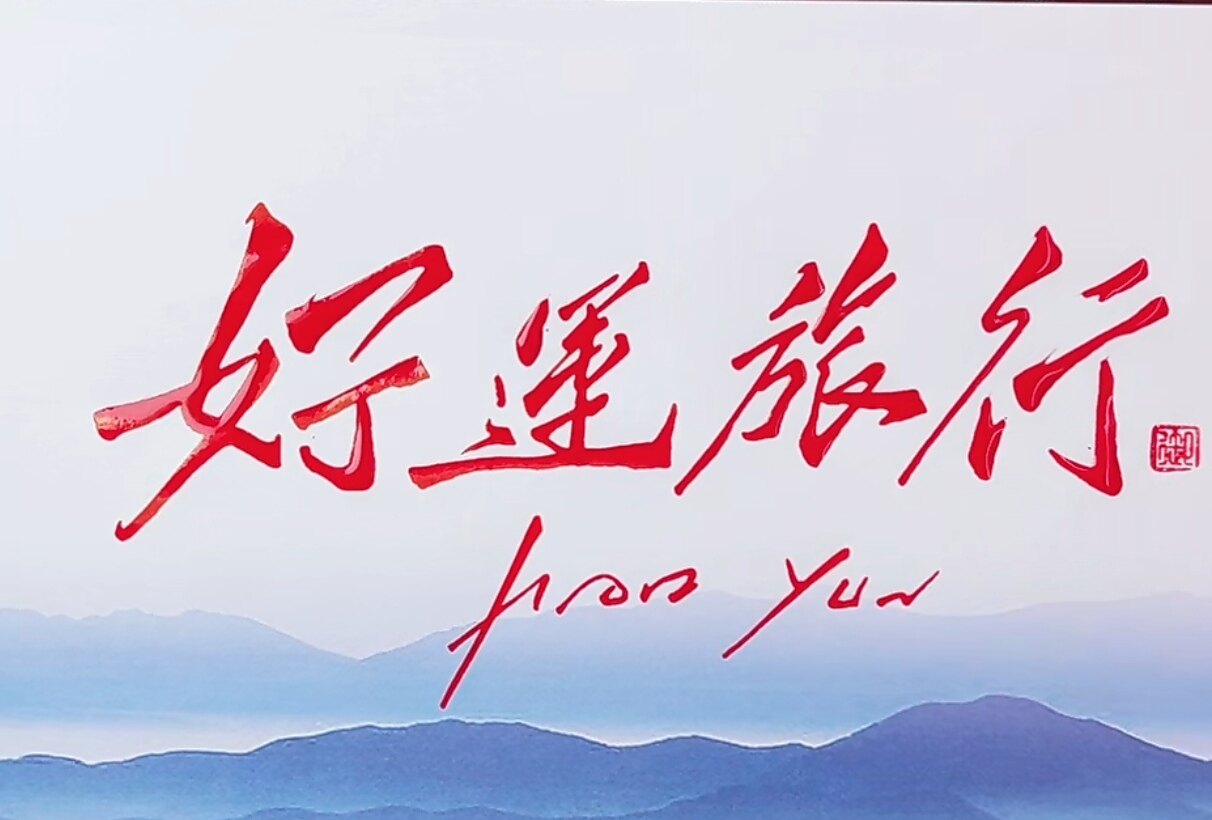 好運旅行
hao yun